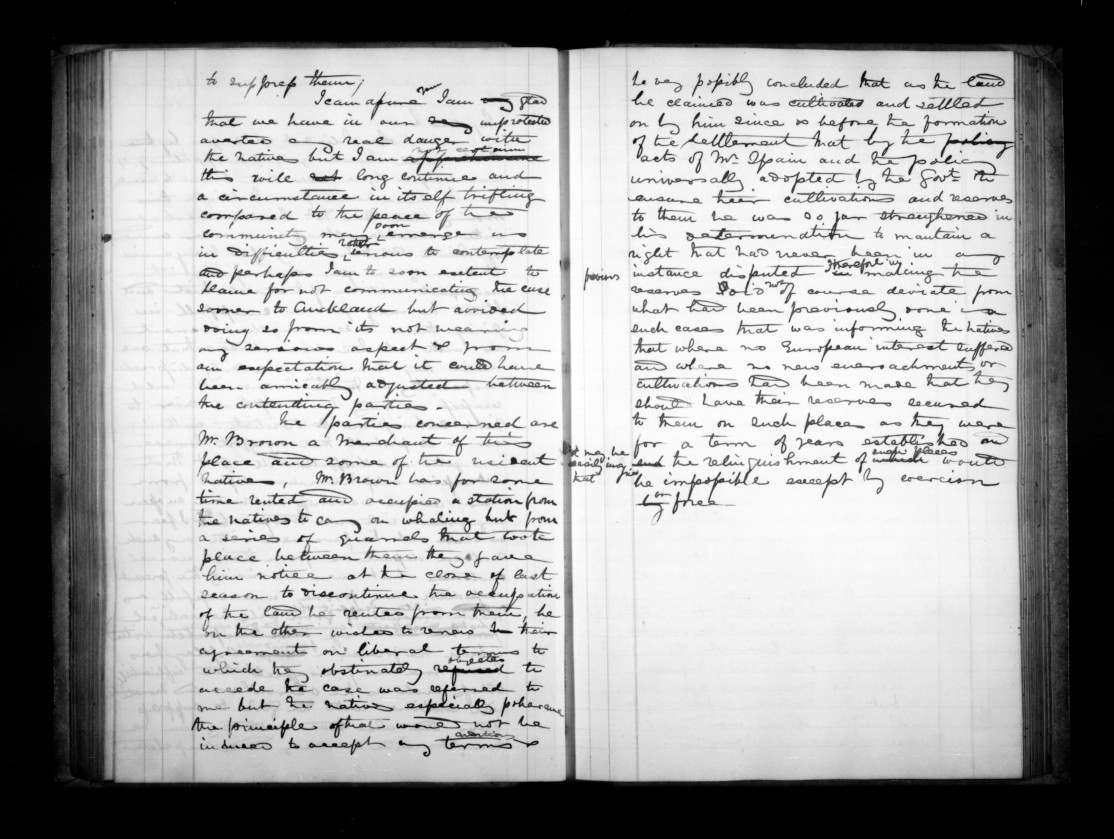 to suppress them;
I can assure you I am any glad
that we have in our very unprotected
averted any real danger with
the natives but I am not certain apprehensive
this will not long continue and
a circumstance in itself trifling
compared to the peace of the
community may soon emerge us
in difficulties rather serious to contemplate
and perhaps I am to some extent to
blame for not communicating the case
sooner to Auckland but avoided
doing so from its not wearing
any serious aspect & from
an expectation that it could have
been amicably adjusted between
the contending parties.
The parties concerned are
Mr. Brown a Merchant of this
place and some of the resident
natives, Mr. Brown has for some
time rented and occupied a station from
the natives to carry on whaling but from
a series of quarrels that took
place between them they gave
him notice at the close of last
season to discontinue the occupation
of the land he rented from them, he
on the other wishes to renew the their
agreement on liberal terms to
which they obstinately objected refused to
accede the case was referred to
me but the natives especially
the principle of that would not be
induced to accept any terms &
he very possibly concluded that as the land
he claimed was cultivated and settled
on by him since & before the formation
of the settlement that by the policy
acts of Mr. Spain and the policy
universally adopted by the Govt. to
ensure their cultivations and reserves
to them he was so far straightened in
his determination to maintain a
right that had never been in any
previous
instance disputed Therefore in in making the
reserves I did not of course deviate from
what had been previously done in a
such cases that was informing the natives
that where no European interest suffered
and where no new encroachments or
cultivations had been made that they
should have their reserves secured
to them on such places as they were
for a term of years established on
it may be easily imagined that
and the relinquishment of such places which would
be impossible except by coercion
or
by force